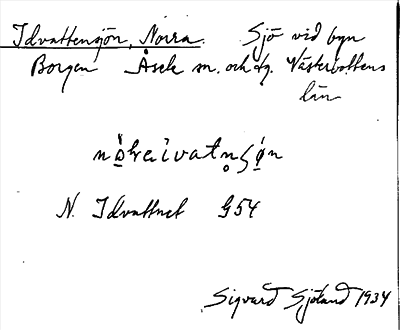 Idvattensjön, Norra. Sjö vid byn
Borgen Åsele sn. och tg. Västerbottens
län
N. Idvattnet G54
Sigvard Sjöland 1934